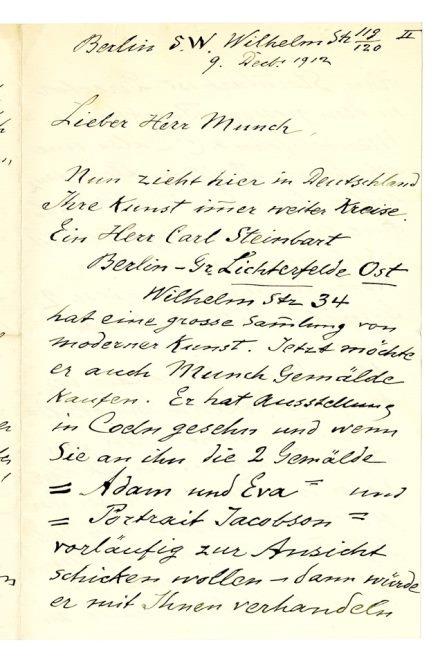 Berlin S.W. Wilhelm Str 119/120 II
9. Decb. 1912
Lieber Herr Munch,
Nun zieht hier in Deutschland
Ihre Kunst im̅er weiter Kreise.
Ein Herr Carl Steinbart
Berlin – Gr Lichterfelde Ost
Wilhelm Str 34
hat eine grosse Sam̅lung von
moderner Kunst. Jetzt möchte
er auch Munch Gemälde
kaufen. Er hat Ausstellung
in Coeln gesehn und wenn
Sie an ihn die 2 Gemälde
= Adam und Eva = und
= Portrait Jacobson =
vorläufig zur Ansicht
schicken wollen – dann würde
er mit Ihnen verhandeln